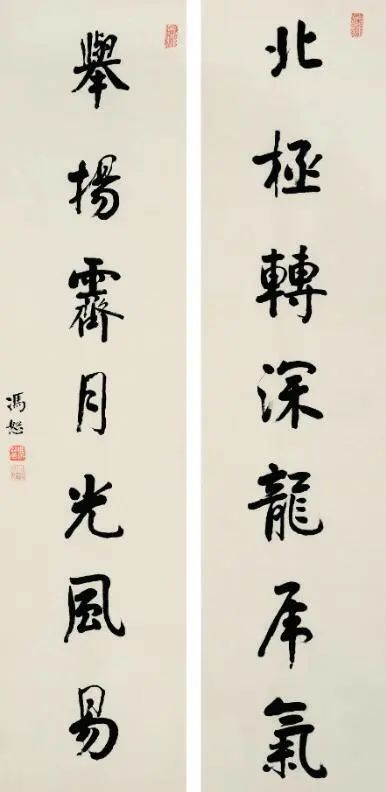 北極轉深龍虎氣
舉揚霽月光風易
馮恕